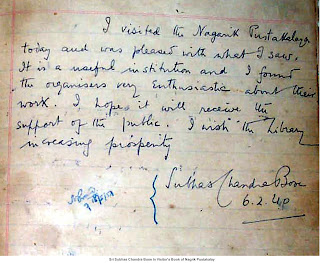 I visited the Nagarik Pustakalaya
today and was pleased with what I saw.
It is a useful institution and I found
the organisers very Enthusiastic about their
work. I hopes it will receive the
support of the public. I wish the Library
increasing prosperity
Subhas Chandra Bose
6.2.40
Sri Subhas Chandra Bose in Visitor's Book of Nagrik Pustakalay